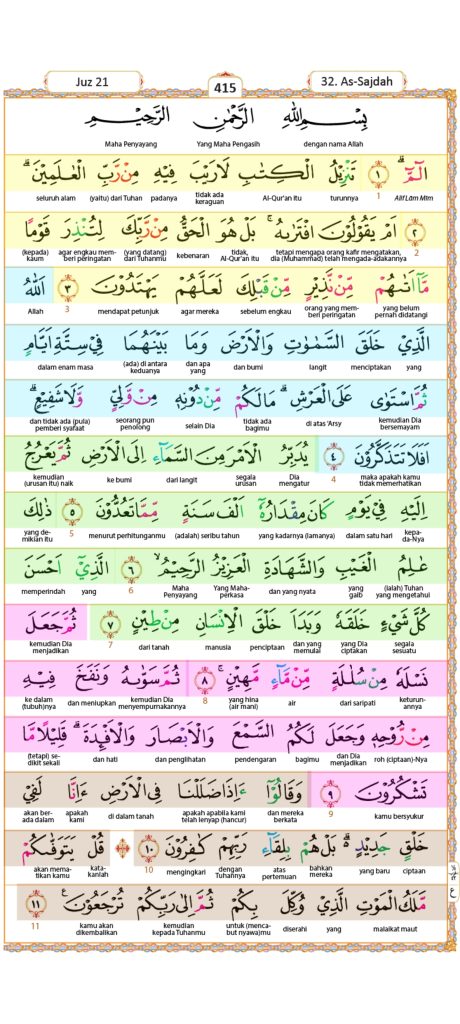 Juz 21
415
32. As-Sajdah
بِسْمِ اللّٰهِ الرَّحْمٰنِ الرَّحِيْمِ
dengan nama Allah Yang Maha Pengasih Maha Penyayang
الۤمّۤ ۗ ١ تَنْزِيْلُ الْكِتٰبِ لَا رَيْبَ فِيْهِ مِنْ رَّبِّ الْعٰلَمِيْنَ ۗ
Alif Lām Mīm 1 turunnya Al-Qur'an itu tidak ada keraguan padanya (yaitu) dari Tuhan seluruh alam
٢ اَمْ يَقُوْلُوْنَ افْتَرٰىهُ ۚ بَلْ هُوَ الْحَقُّ مِنْ رَّبِّكَ لِتُنْذِرَ قَوْمًا
2 tetapi mengapa orang kafir mengatakan, dia (Muhammad) telah mengada-adakannya tidak, Al-Qur'an itu kebenaran (yang datang) dari Tuhanmu agar engkau memberi peringatan (kepada) kaum
مَّآ اَتٰىهُمْ مِّنْ نَّذِيْرٍ مِّنْ قَبْلِكَ لَعَلَّهُمْ يَهْتَدُوْنَ ٣ اَللّٰهُ
yang belum pernah didatangi orang yang memberi peringatan sebelum engkau agar mereka mendapat petunjuk 3 Allah
الَّذِيْ خَلَقَ السَّمٰوٰتِ وَالْاَرْضَ وَمَا بَيْنَهُمَا فِيْ سِتَّةِ اَيَّامٍ
yang menciptakan langit dan bumi dan apa yang (ada) di antara keduanya dalam enam masa
ثُمَّ اسْتَوٰى عَلَى الْعَرْشِ ۗ مَا لَكُمْ مِّنْ دُوْنِهٖ مِنْ وَّلِيٍّ وَّلَا شَفِيْعٍ ۗ
kemudian Dia bersemayam di atas 'Arsy tidak ada bagimu selain Dia seorang pun penolong dan tidak ada (pula) pemberi syafaat
اَفَلَا تَتَذَكَّرُوْنَ ٤ يُدَبِّرُ الْاَمْرَ مِنَ السَّمَاۤءِ اِلَى الْاَرْضِ ثُمَّ يَعْرُجُ
maka apakah kamu tidak memerhatikan 4 Dia mengatur segala urusan dari langit ke bumi kemudian (urusan itu) naik
اِلَيْهِ فِيْ يَوْمٍ كَانَ مِقْدَارُهٗٓ اَلْفَ سَنَةٍ مِّمَّا تَعُدُّوْنَ ٥ ذٰلِكَ
kepada-Nya dalam satu hari yang kadarnya (lamanya) (adalah) seribu tahun menurut perhitunganmu 5 yang demikian itu
عٰلِمُ الْغَيْبِ وَالشَّهَادَةِ الْعَزِيْزُ الرَّحِيْمُ ٦ الَّذِيْٓ اَحْسَنَ
(ialah) Tuhan yang mengetahui yang gaib dan yang nyata Yang Maha-perkasa Maha Penyayang 6 yang memperindah
كُلَّ شَيْءٍ خَلَقَهٗ وَبَدَاَ خَلْقَ الْاِنْسَانِ مِنْ طِيْنٍ ٧ ثُمَّ جَعَلَ
segala sesuatu yang Dia ciptakan dan yang memulai penciptaan manusia dari tanah 7 kemudian Dia menjadikan
نَسْلَهٗ مِنْ سُلٰلَةٍ مِّنْ مَّاۤءٍ مَّهِيْنٍ ۚ ٨ ثُمَّ سَوّٰىهُ وَنَفَخَ فِيْهِ
keturunannya dari saripati air yang hina (air mani) 8 kemudian Dia menyempurnakannya dan meniupkan ke dalam (tubuh)nya
مِنْ رُّوْحِهٖ وَجَعَلَ لَكُمُ السَّمْعَ وَالْاَبْصَارَ وَالْاَفْـِٕدَةَ ۗ قَلِيْلًا مَّا
roh (ciptaan)-Nya dan Dia menjadikan bagimu pendengaran dan penglihatan dan hati (tetapi) sedikit sekali
تَشْكُرُوْنَ ٩ وَقَالُوْٓا ءَاِذَا ضَلَلْنَا فِى الْاَرْضِ ءَاِنَّا لَفِيْ
kamu bersyukur 9 dan mereka berkata apakah apabila kami telah lenyap (hancur) di dalam tanah apakah kami akan berada dalam
خَلْقٍ جَدِيْدٍ ۗ بَلْ هُمْ بِلِقَاۤءِ رَبِّهِمْ كٰفِرُوْنَ ١٠ قُلْ يَتَوَفّٰىكُمْ
ciptaan yang baru bahkan mereka atas pertemuan dengan Tuhannya mengingkari 10 katakanlah akan mematikan kamu
مَّلَكُ الْمَوْتِ الَّذِيْ وُكِّلَ بِكُمْ ثُمَّ اِلٰى رَبِّكُمْ تُرْجَعُوْنَ ࣖ ١١
malaikat maut yang diserahi untuk (mencabut nyawa)mu kemudian kepada Tuhanmu kamu akan dikembalikan 11
ع